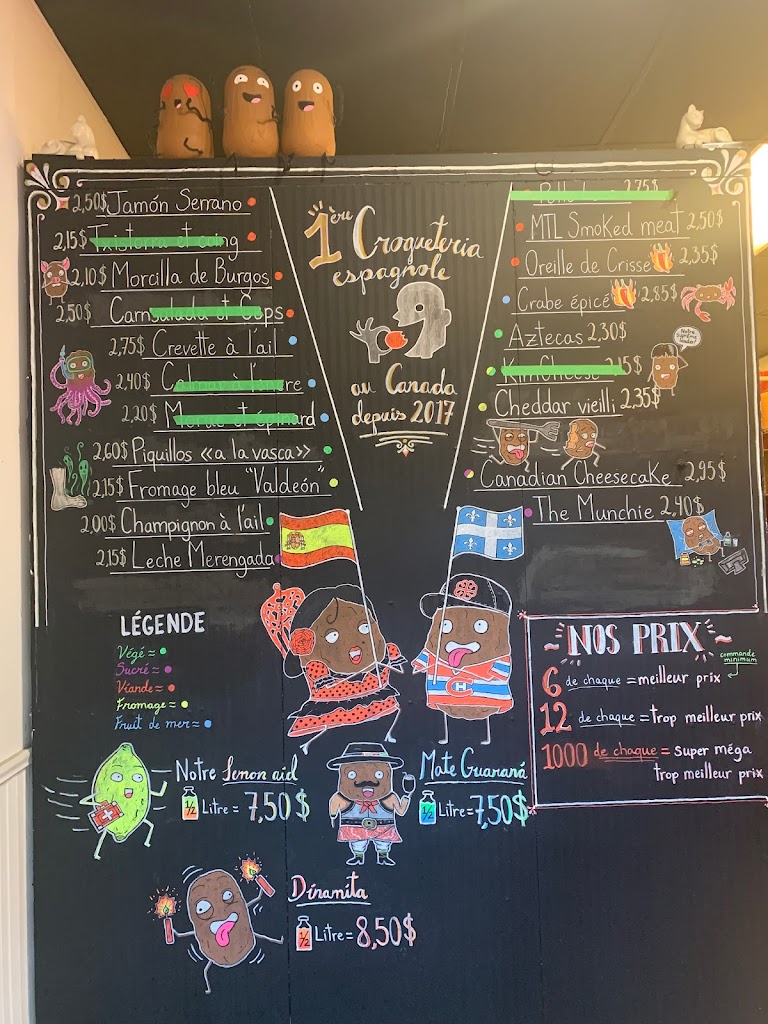 2,50$ Jamón Serrano
2,15$ Txistorra et coing
2,10$ Morcilla de Burgos
2,50$ Carnsalada et Ceps
2,75$ Crevette à l'ail
2,40$ Calmar à l'encre
2,20$ Morue et épinard
2,60$ Piquillos «a la vasca»
2,15$ Fromage bleu "Valdeón"
2,00$ Champignon à l'ail
2,15$ Leche Merengada
1ère Croqueteria
espagnole
au Canada
depuis 2017
2,75$
MTL Smoked meat 2,50$
Oreille de Crisse 2,35$
Crabe épicé 2,85$
Aztecas 2,30$
KimCheese 2,15$
Notre
Suprême
leader!
Cheddar vieilli 2,35$
Canadian Cheesecake 2,95$
The Munchie 2,40$
LÉGENDE
Végé =
Sucré =
Viande =
Fromage =
Fruit de mer =
NOS PRIX
commande
minimum
6 de chaque = meilleur prix
12 de chaque = trop meilleur prix
1000 de chaque = super méga
trop meilleur prix
Notre Lemon aid
1/2 Litre = 7,50$
Mate Guaraná
1/2 Litre = 7,50$
Dinamita
1/2 Litre = 8,50$